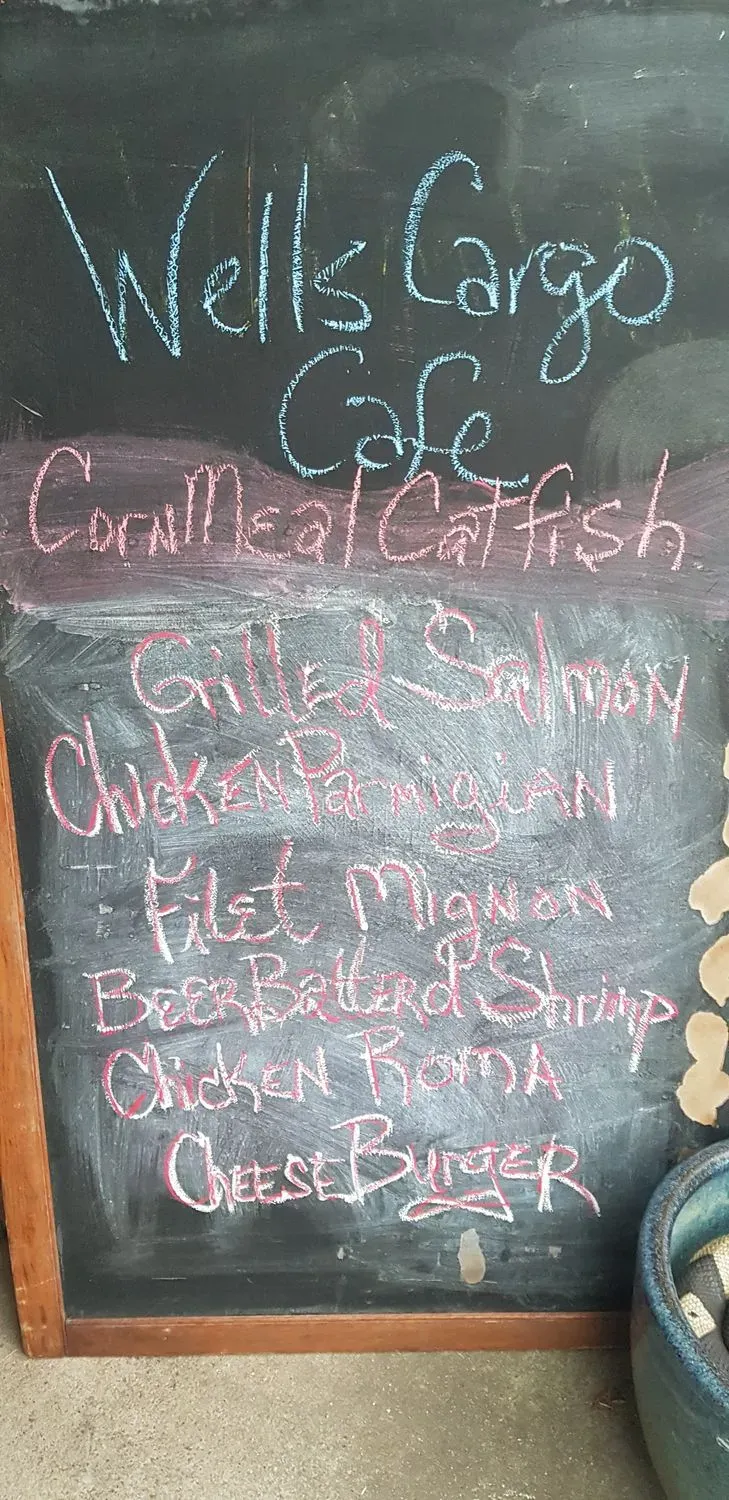 Wells Cargo
Cafe
CornMeal Catfish
Grilled Salmon
Chicken Parmigian
Filet Mignon
Beer Batterd Shrimp
Chicken Roma
Cheese Burger